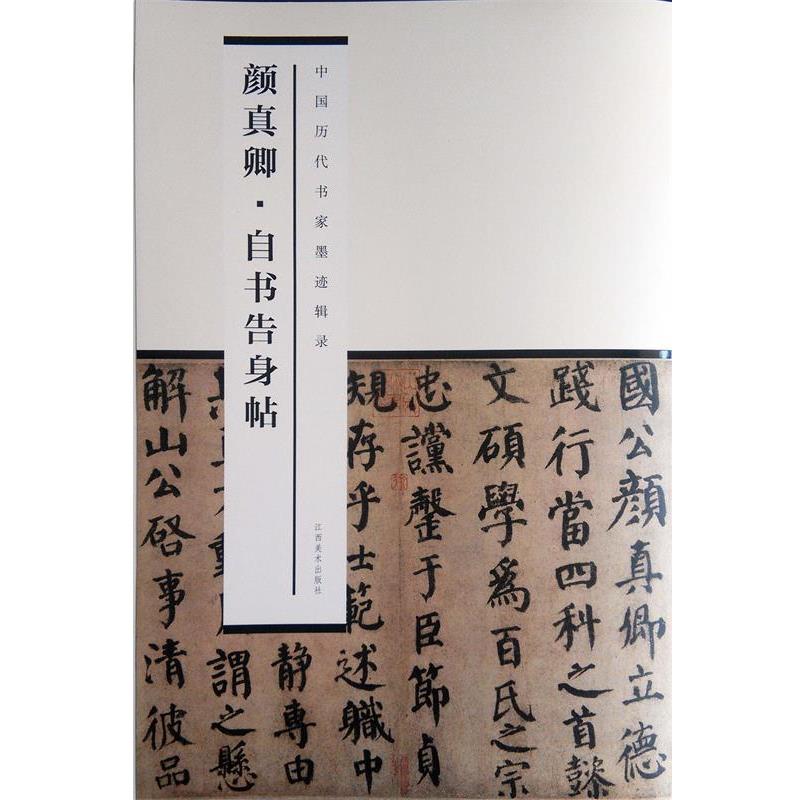 中国历代书家墨迹辑录
颜真卿·自书告身帖
江西美术出版社
國公顔真卿立德
踐行當四科之首懿
文碩學為百氏之宗
忠讜罄于臣節貞
規存乎士範述職中
謂之懸
静専由
解山公啓事清彼品